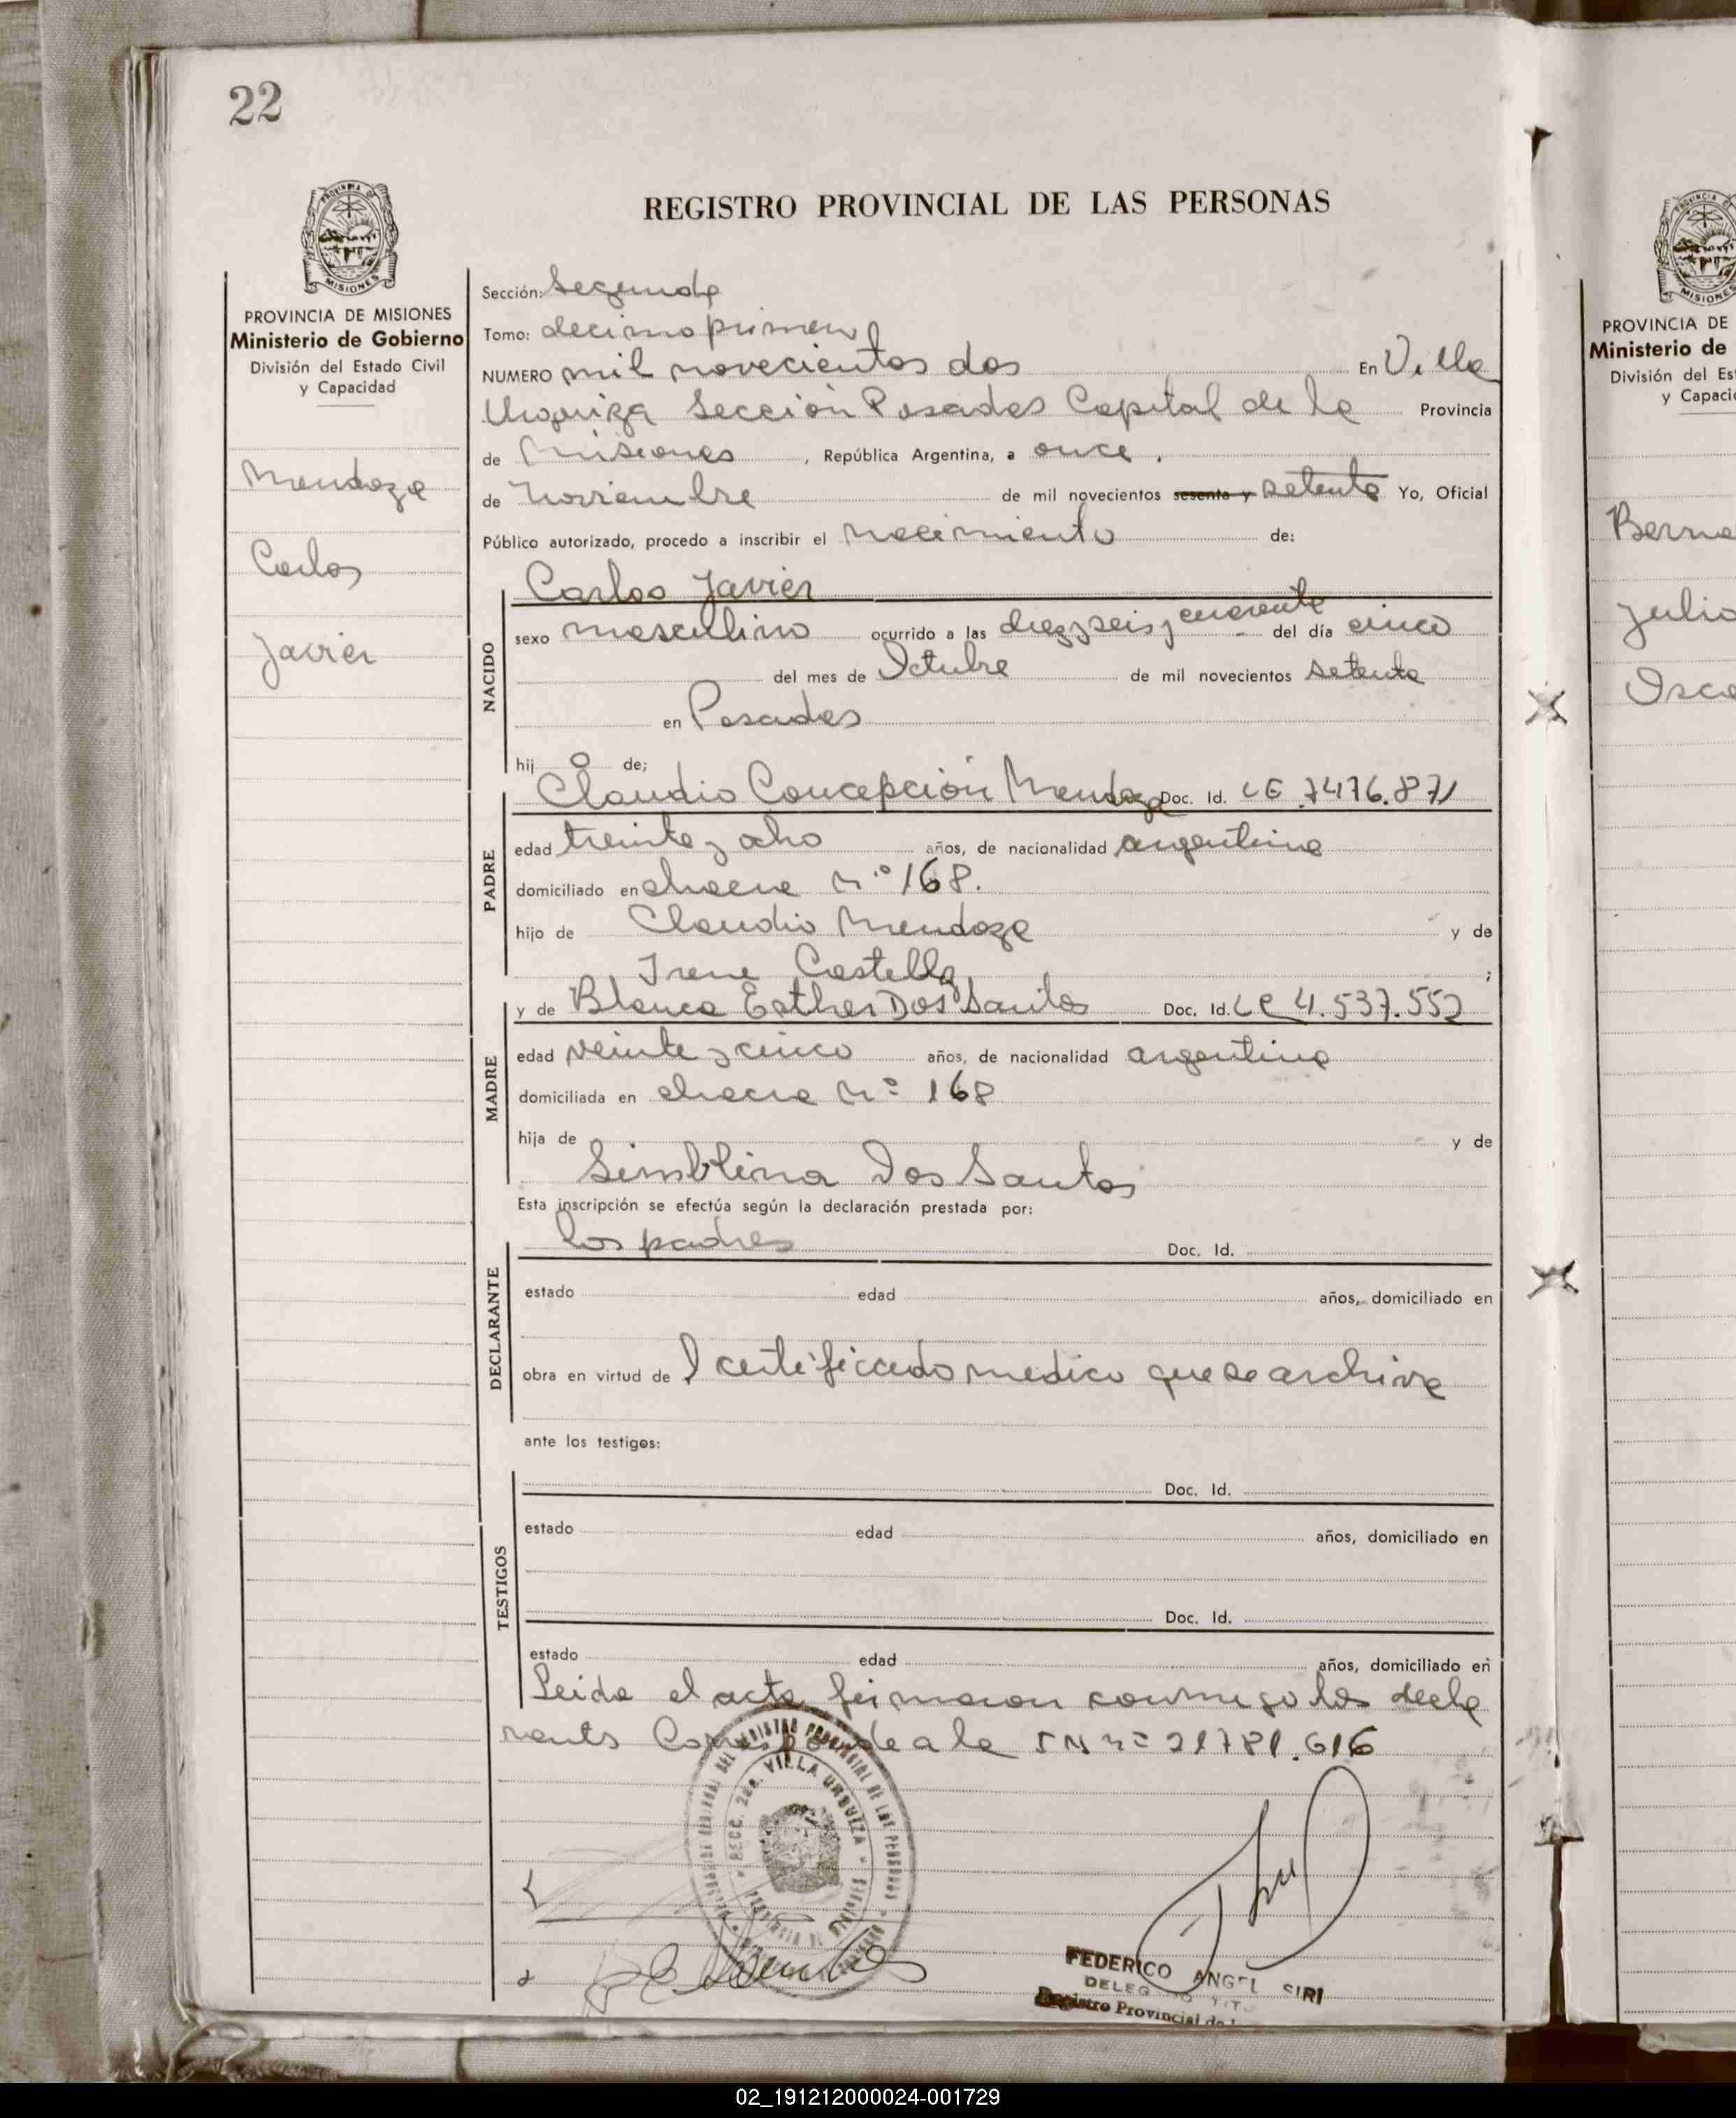 22
REGISTRO PROVINCIAL DE LAS PERSONAS
PROVINCIA DE MISIONES
Ministerio de Gobierno
División del Estado Civil
y Capacidad
Mendoza
Carlos
Javier
Sección: Segunda
Tomo: decimo primero
NUMERO mil novecientos dos En Villa
Urquiza Sección Posadas Capital de la Provincia
de Misiones, República Argentina, a once.
de noviembre de mil novecientos sesenta y setenta Yo, Oficial
Público autorizado, procedo a inscribir el nacimiento de:
NACIDO
Carlos Javier
sexo masculino ocurrido a las diez y seis y cuarenta del día cinco
del mes de Octubre de mil novecientos setenta
en Posadas
hijo de;
PADRE
Claudio Concepción Mendoza Doc. Id. LE 7476.871
edad treinta y ocho años, de nacionalidad argentina
domiciliado en chacra n° 168.
hijo de Claudio Mendoza y de
Irene Castella;
MADRE
y de Blanca Esther Dos Santos Doc. Id. LC 4.537.552
edad veinte y cinco años, de nacionalidad argentina
domiciliada en chacra n° 168
hija de y de
Simblina Dos Santos
Esta inscripción se efectúa según la declaración prestada por:
DECLARANTE
los padres Doc. Id.
estado edad años, domiciliado en
obra en virtud de l certificado medico que se archiva
ante los testigos:
TESTIGOS
Doc. Id.
estado edad años, domiciliado en
Doc. Id.
estado edad años, domiciliado en
Leida el acta firmaron conmigo los decla
rants Corresponde a la n° 21781.616
SECC. 2da. VILLA URQUIZA
FEDERICO ANGEL SIRI
Registro Provincial de
PROVINCIA DE
Ministerio de
División del Es
y Capaci
Berna
Julio
Osca
02_191212000024-001729